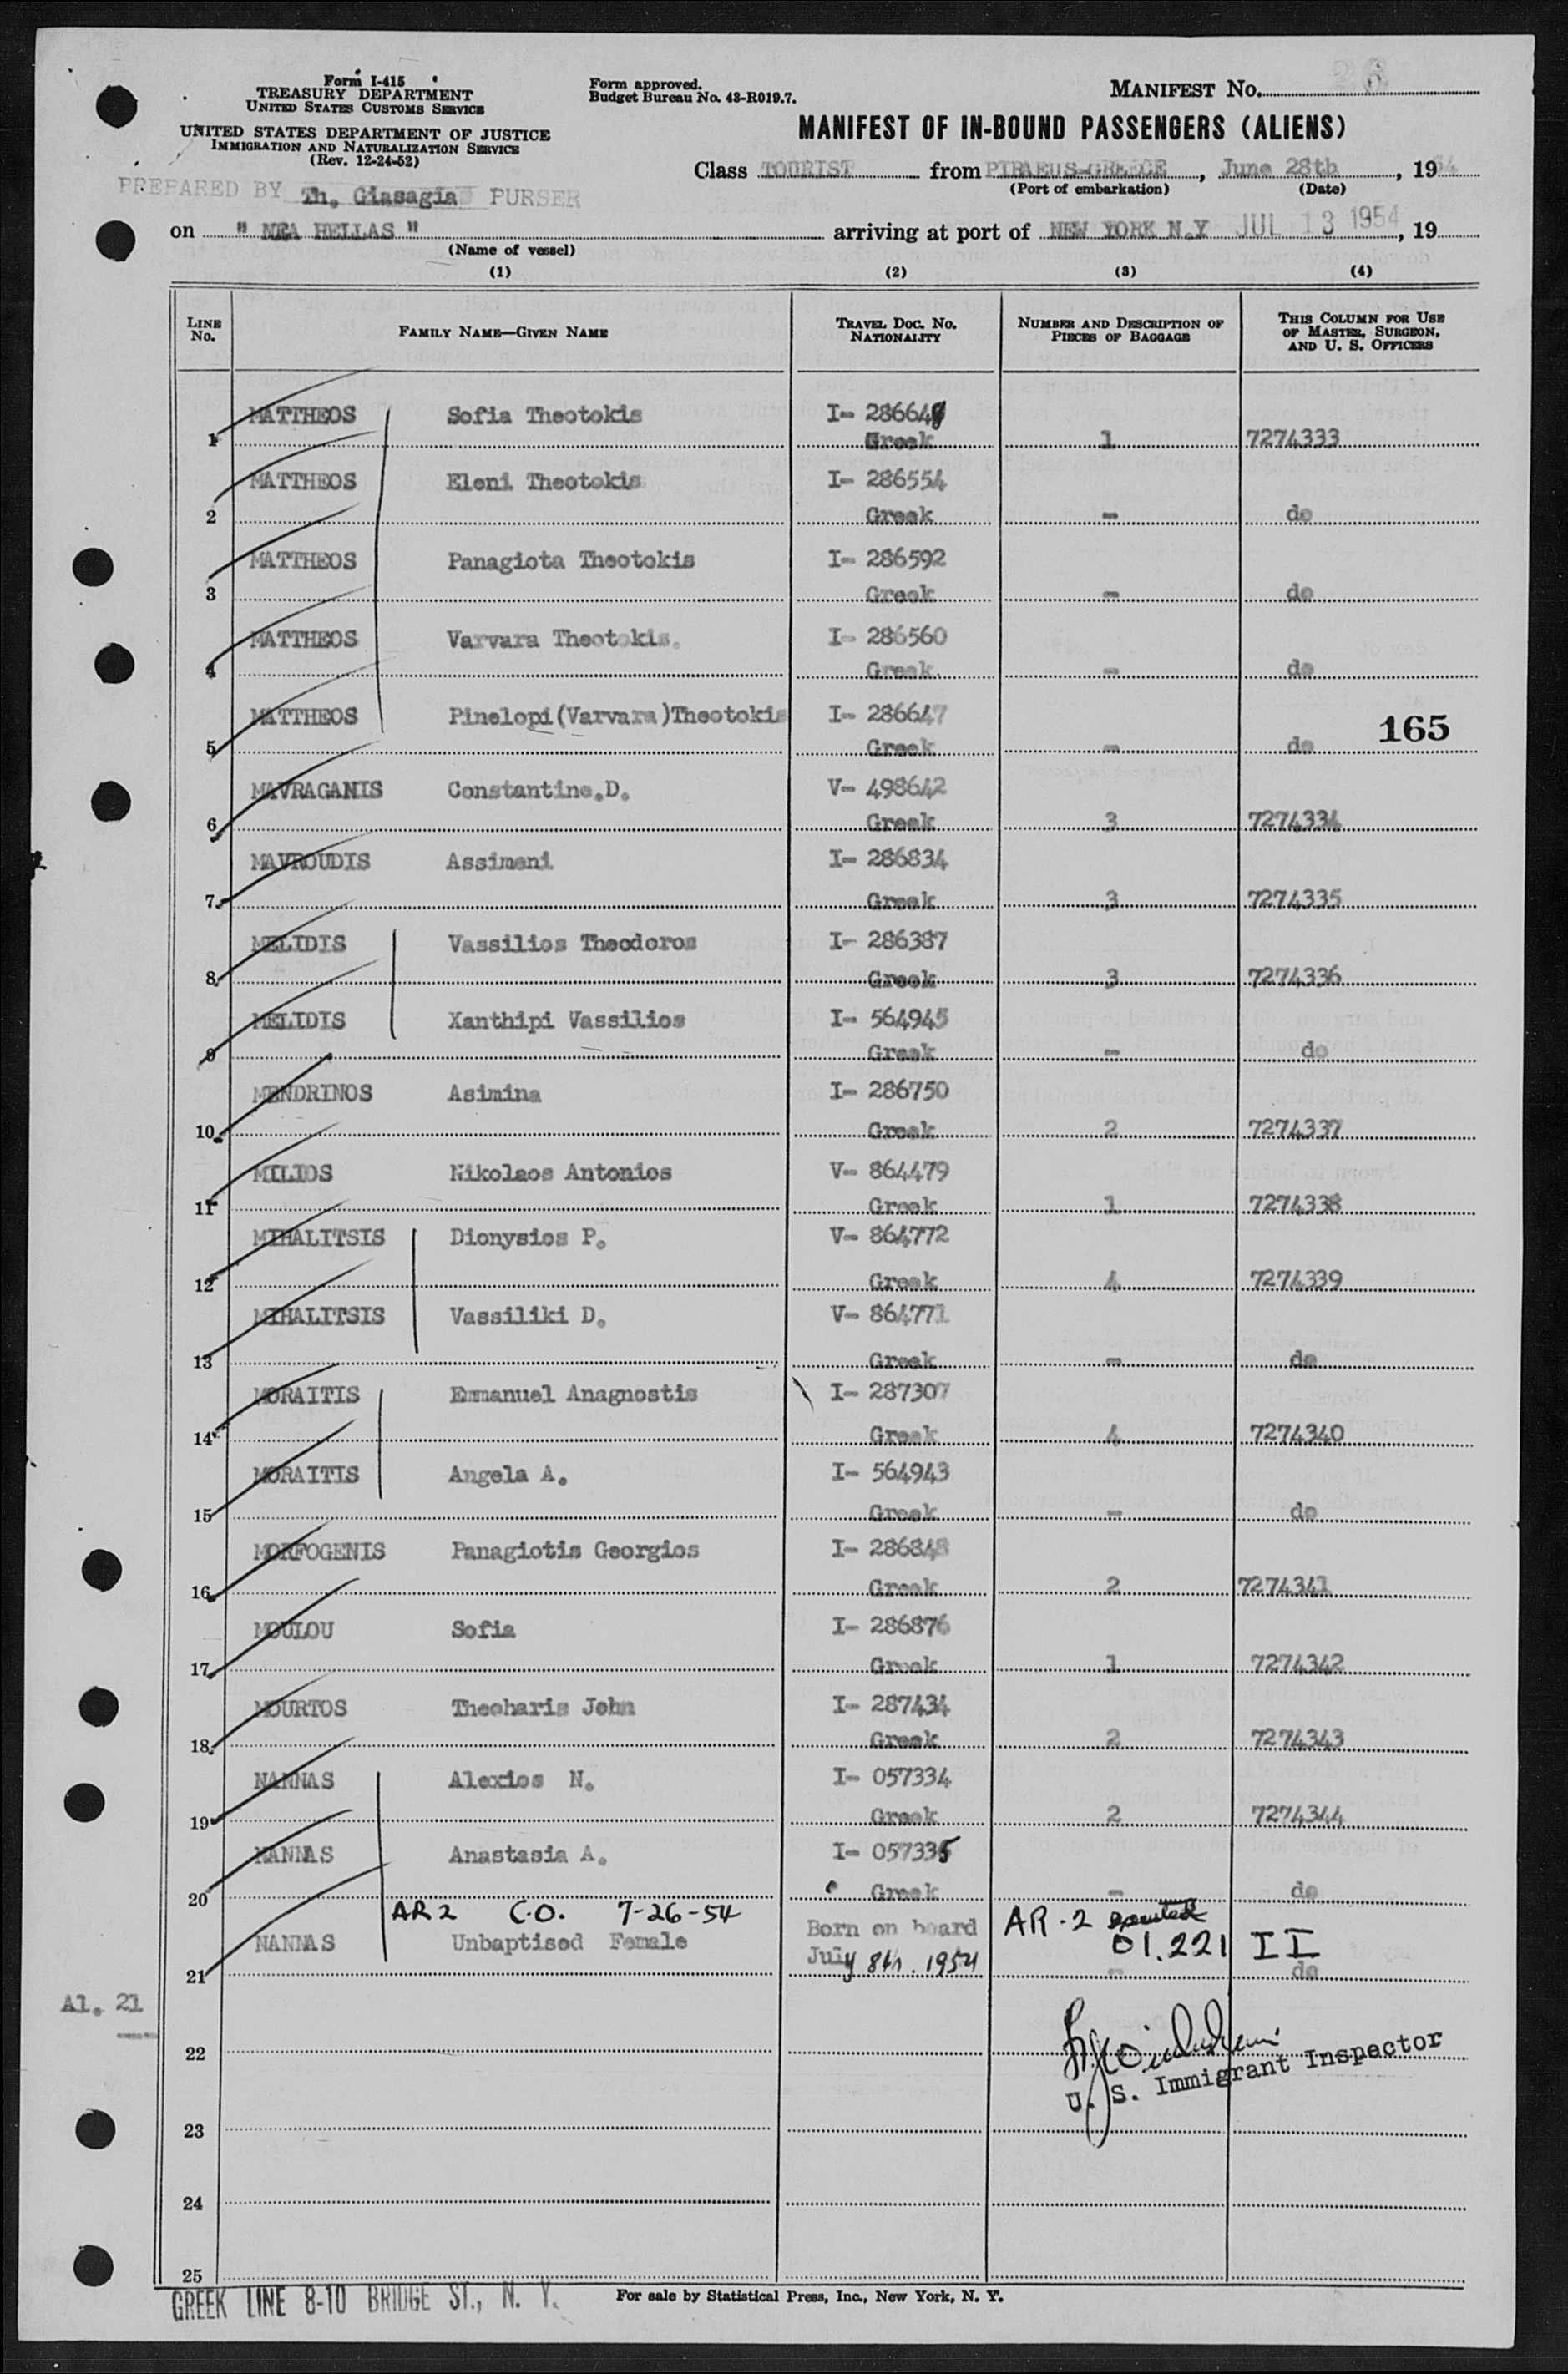 Form I-415
TREASURY DEPARTMENT
UNITED STATES CUSTOMS SERVICE
UNITED STATES DEPARTMENT OF JUSTICE
IMMIGRATION AND NATURALIZATION SERVICE
(Rev. 12-24-52)
Form approved.
Budget Bureau No. 43-R019.7.
MANIFEST No.
MANIFEST OF IN-BOUND PASSENGERS (ALIENS)
Class TOURIST from PIRAEUS-GREECE, June 28th, 1954
(Port of embarkation) (Date)
PREPARED BY Th. Giasagia PURSER
on " NEA HELLAS " arriving at port of NEW YORK N.Y JUL 13 1954, 19
(Name of vessel)
(1) (2) (3) (4)
LINE No. FAMILY NAME—GIVEN NAME TRAVEL DOC. NO. NATIONALITY NUMBER AND DESCRIPTION OF PIECES OF BAGGAGE THIS COLUMN FOR USE OF MASTER, SURGEON, AND U. S. OFFICERS
MATTHEOS Sofia Theotokis I- 286648
1 Greek 1 7274333
MATTHEOS Eleni Theotokis I- 286554
2 Greek - do
MATTHEOS Panagiota Theotokis I- 286592
3 Greek - do
MATTHEOS Varvara Theotokis. I- 286560
4 Greek. - do
MATTHEOS Pinelopi(Varvara)Theotokis I- 286647
165
5 Greek - do
MAVRAGANIS Constantine.D. V- 498642
6 Greek 3 7274334
MAVROUDIS Assimeni I- 286834
7 Greek 3 7274335
MELIDIS Vassilios Theodoros I- 286387
8 Greek 3 7274336
MELIDIS Xanthipi Vassilios I- 564945
9 Greek - do
MENDRINOS Asimina I- 286750
10 Greek 2 7274337
MILIOS Nikolaos Antonios V- 864479
11 Greek 1 7274338
MIHALITSIS Dionysios P. V- 864772
12 Greek 4 7274339
MIHALITSIS Vassiliki D. V- 864771
13 Greek - do
MORAITIS Emmanuel Anagnostis I- 287307
14 Greek 4 7274340
MORAITIS Angela A. I- 564943
15 Greek - do
MORFOGENIS Panagiotis Georgios I- 286848
16 Greek 2 7274341
MOULOU Sofia I- 286876
17 Greek 1 7274342
MOURTOS Theoharis John I- 287434
18 Greek 2 7274343
NANNAS Alexios N. I- 057334
19 Greek 2 7274344
NANNAS Anastasia A. I- 057335
20 Greek - do
AR2 C.O. 7-26-54 AR-2
NANNAS Unbaptised Female Born on board 01.221 II
21 July 8th. 1954 - do
Al. 21
22
U. S. Immigrant Inspector
23
24
25
GREEK LINE 8-10 BRIDGE ST., N. Y.
For sale by Statistical Press, Inc., New York, N. Y.